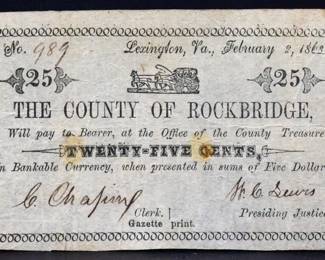 No. 989 Lexington, Va., February 2, 1862
25 25
THE COUNTY OF ROCKBRIDGE,
Will pay to Bearer, at the Office of the County Treasure
TWENTY-FIVE CENTS,
in Bankable Currency, when presented in sums of Five Dollar
C. Chapin W. C. Lewis
Clerk. Presiding Justice
Gazette print.